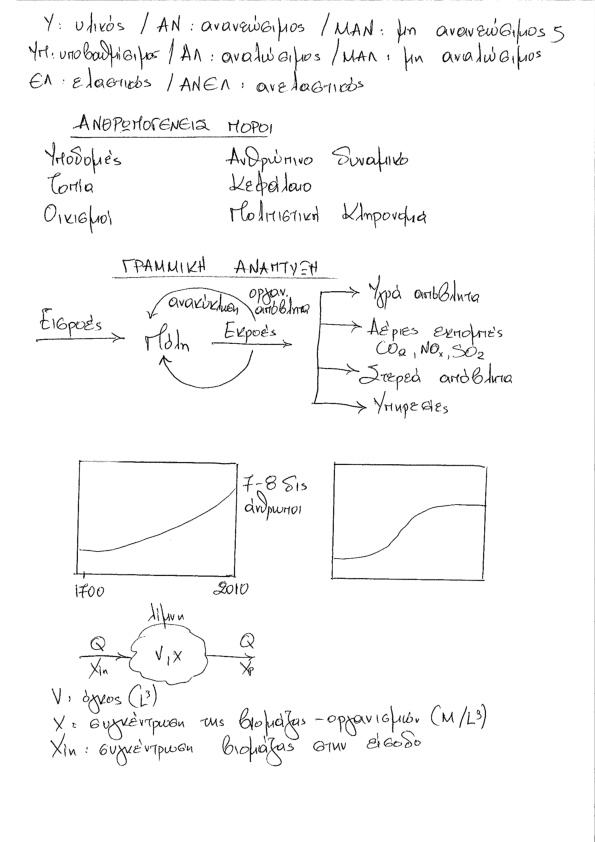 Υ: υλικός / ΑΝ: ανανεώσιμος / ΜΑΝ: μη ανανεώσιμος 5
ΥΠ: υποβαθμίσιμος / ΑΛ: αναλώσιμος / ΜΑΛ: μη αναλώσιμος
ΕΛ: ελαστικός / ΑΝΕΛ: ανελαστικός
ΑΝΘΡΩΠΟΓΕΝΕΙΣ ΠΟΡΟΙ
Υποδομές Ανθρώπινο Δυναμικό
Τοπία Κεφάλαιο
Οικισμοί Πολιτιστική Κληρονομιά
ΓΡΑΜΜΙΚΗ ΑΝΑΠΤΥΞΗ
Εισροές
ανακύκλωση
οργαν. απόβλητα
Πόλη
Εκροές
Υγρά απόβλητα
Αέριες εκπομπές
CO2, NOx, SO2
Στερεά απόβλητα
Υπηρεσίες
7-8 δις
άνθρωποι
1700 2010
λίμνη
Q Q
V, X
Xin Xp
V: όγκος (L³)
X: συγκέντρωση της βιομάζας - οργανισμών (M/L³)
Xin: συγκέντρωση βιομάζας στην είσοδο